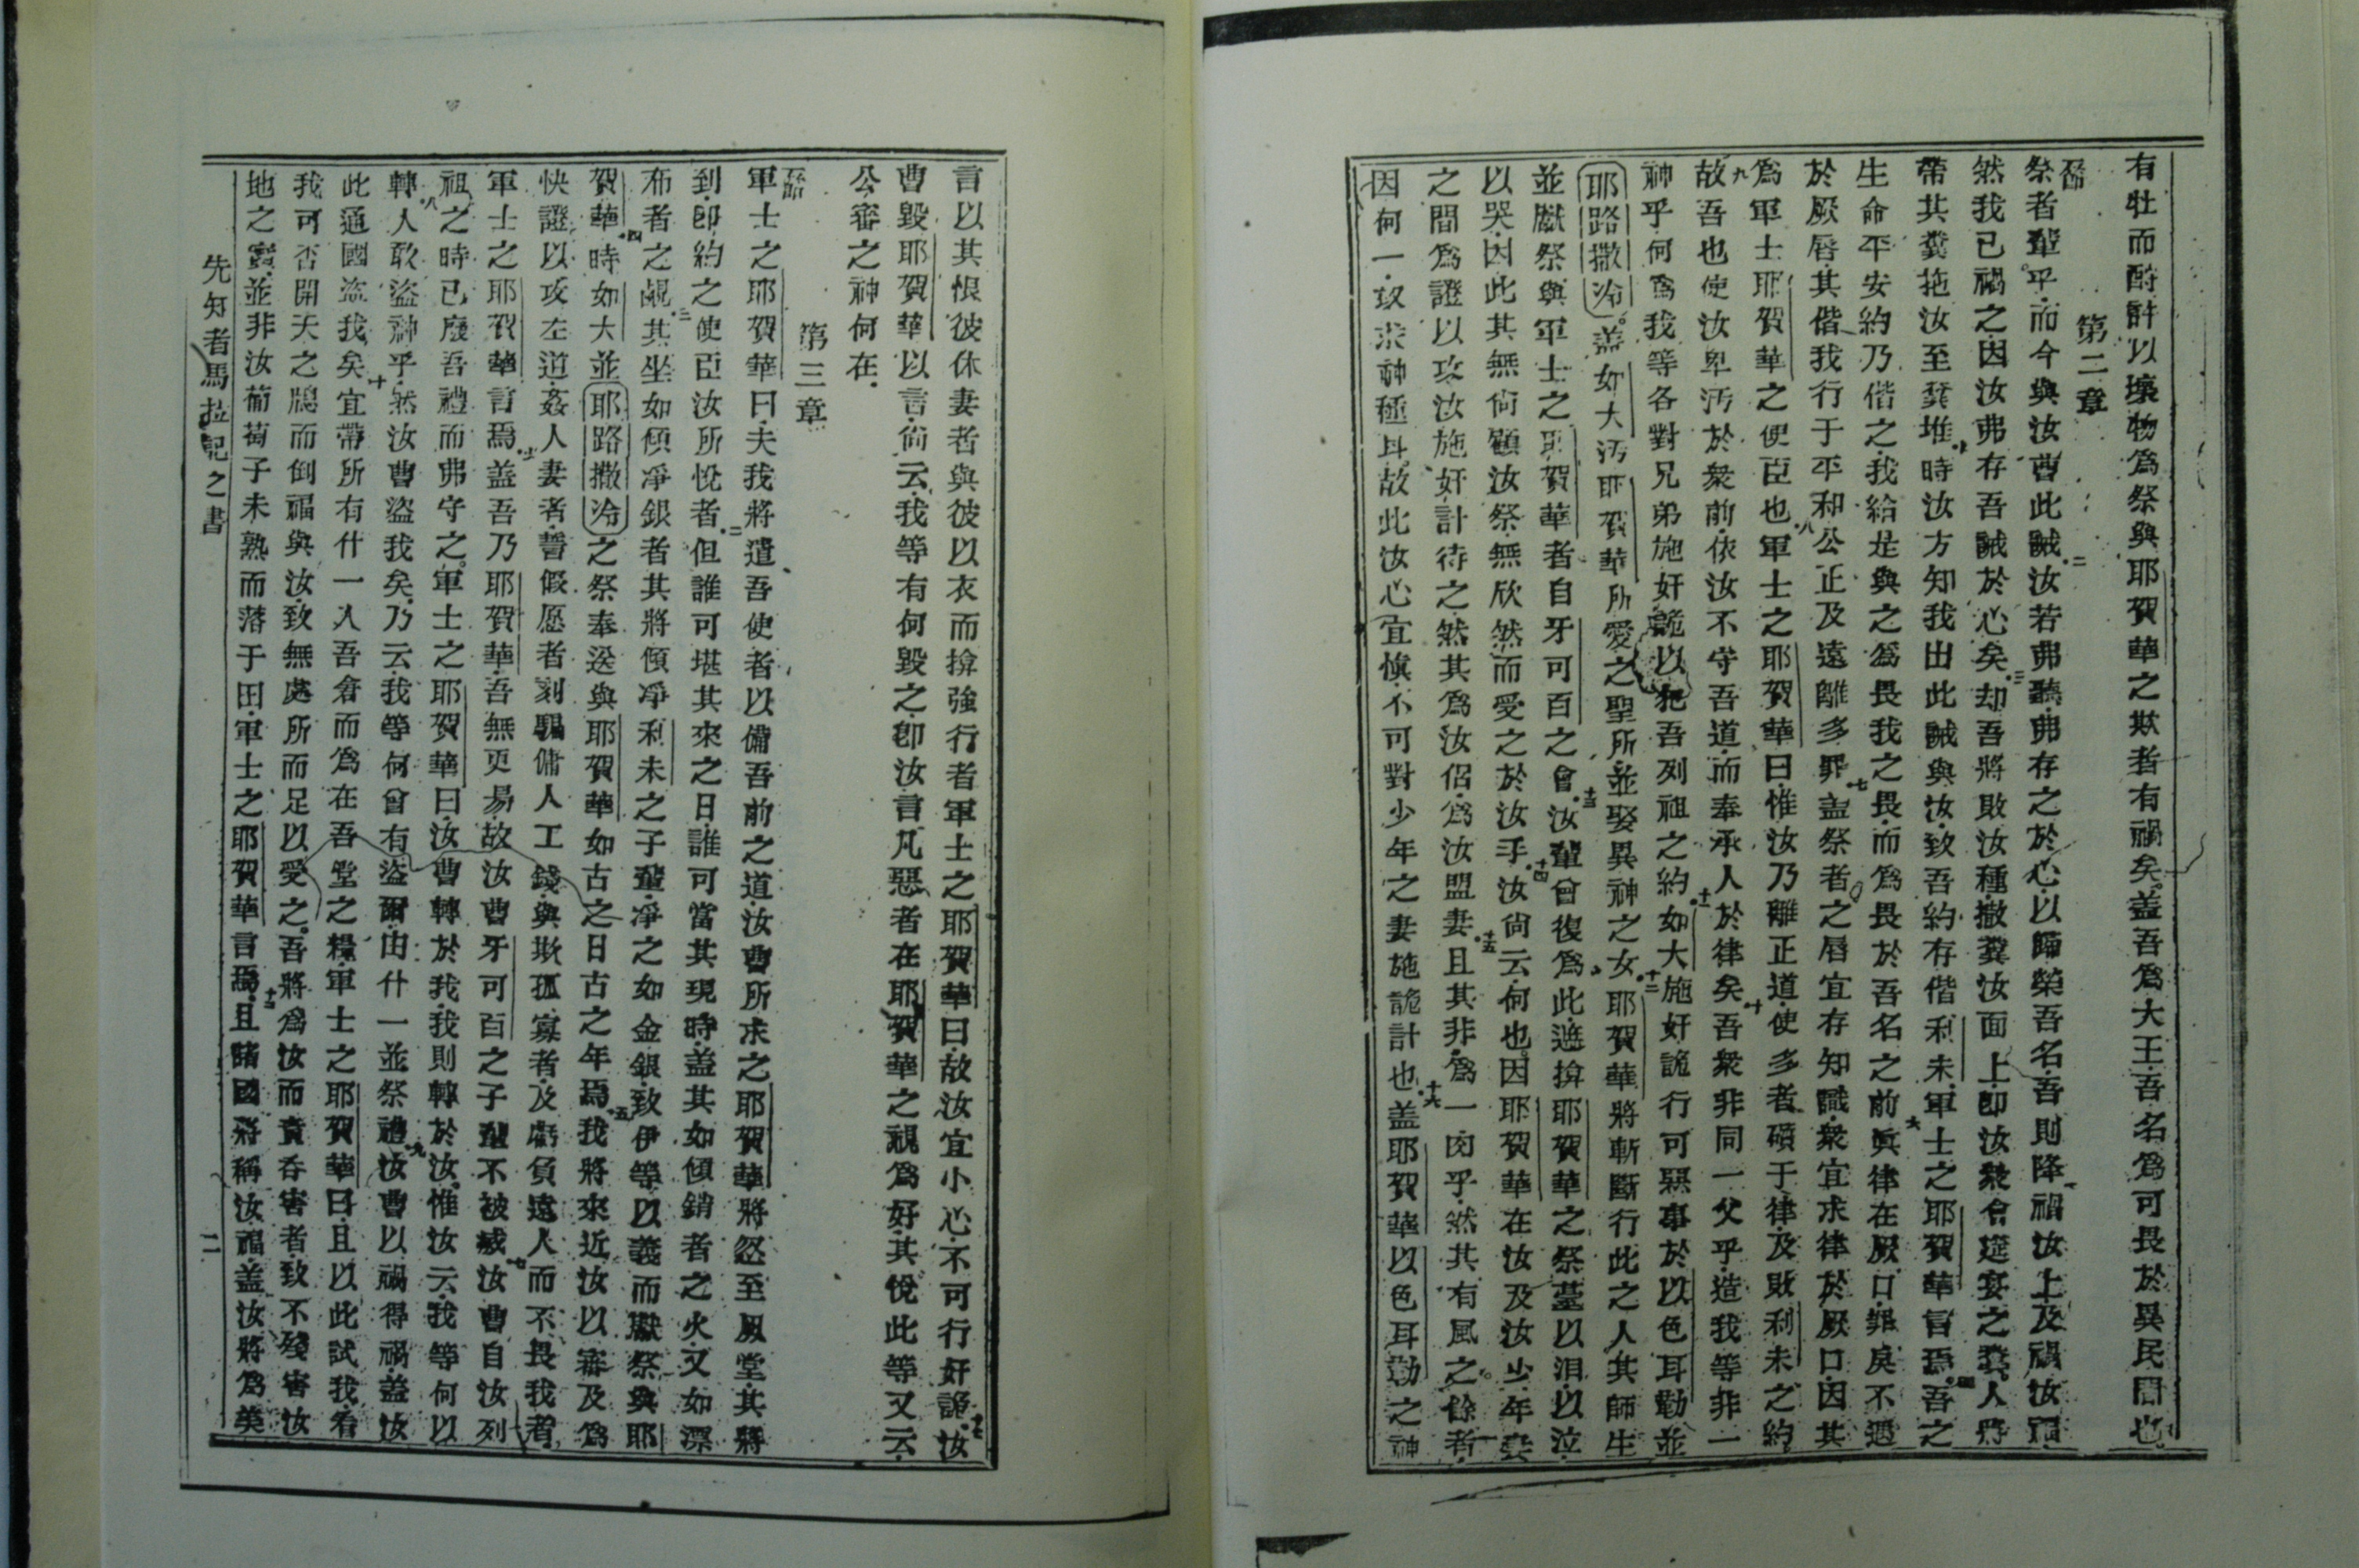 有牡而酧許以壞物爲祭與耶賀華之欺者有禍矣蓋吾爲大王吾名爲可畏於異民間也
第二章
祭者輩乎而今與汝曹此誡二汝若弗聽弗存之於心以歸榮吾名吾則降禍汝上及禍汝福
然我已禍之因汝弗存吾誡於心矣三却吾將敗汝種撒糞汝面上即汝衆會筵宴之糞人將
帶其糞拖汝至糞堆時汝方知我出此誡與汝致吾約存偕利未軍士之耶賀華言焉吾之
生命平安約乃偕之我給是與之爲畏我之畏而爲畏於吾名之前六眞律在厥口罪戾不遇
於厥唇其偕我行于平和公正及遠離多罪七蓋祭者之唇宜存知識衆宜求律於厥口因其
爲軍士耶賀華之使臣也八軍士之耶賀華曰惟汝乃離正道使多者磧于律及敗利未之約
九故吾也使汝卑污於衆前依汝不守吾道而奉承人於律矣十吾衆非同一父乎造我等非一
神乎何爲我等各對兄弟施奸詭以犯吾列祖之約十一如大施奸詭行可惡事於以色耳勒並
耶路撒冷蓋如大污耶賀華所愛之聖所並娶異神之女十二耶賀華將斬斷行此之人其師生
並獻祭與軍士之耶賀華者自牙可百之會十三汝輩曾復爲此遮揜耶賀華之祭臺以泪以泣
以哭因此其無尙顧汝祭無欣然而愛之於汝手十四汝尙云何也因耶賀華在汝及汝少年妻
之間爲證以攻汝施奸計待之然其爲汝侶爲汝盟妻十五且其非爲一肉乎然其有風之餘者
因何一攻求神種耳故此汝心宜愼不可對少年之妻施詭計也十六蓋耶賀華以色耳勒之神
言以其恨彼休妻者與彼以衣而揜強行者軍士之耶賀華曰故汝宜小心不可行奸詭十七汝
曹毀耶賀華以言尙云我等有何毀之即汝言凡惡者在耶賀華之視爲好其悅此等又云
公審之神何在
第三章
軍士之耶賀華曰夫我將遣吾使者以備吾前之道汝曹所求之耶賀華將忽至厥堂其將
到即約之使臣汝所悅者二但誰可堪其來之日誰可當其現時蓋其如傾銷者之火又如漂
布者之鹻三其坐如傾凈銀者其將傾凈利未之子輩凈之如金銀致伊等以義而獻祭與耶
賀華四時如大並耶路撒冷之祭奉送與耶賀華如古之日古之年焉五我將來近汝以審及爲
快證以攻左道姦人妻者誓假愿者刻騙傭人工錢與欺孤寡者及虧負遠人而不畏我者
軍士之耶賀華言焉六蓋吾乃耶賀華吾無更易故汝曹牙可百之子輩不被滅七汝曹自汝列
祖之時已廢吾禮而弗守之軍士之耶賀華曰汝曹轉於我我則轉於汝惟汝云我等何以
轉八人敢盜神乎然汝曹盜我矣乃云我等何曾有盜爾由什一並祭禮九汝曹以禍得禍蓋汝
此通國盜我矣十宜帶所有什一入吾倉而爲在吾堂之糧軍士之耶賀華曰且以此試我看
我可否開天之牕而倒福與汝致無處所而足以受之十一吾將爲汝而責吞害者致不殘害汝
地之實並非汝葡萄子未熟而落于田軍士之耶賀華言焉十二且諸國將稱汝福蓋汝將爲美
先知者馬拉記之書
二